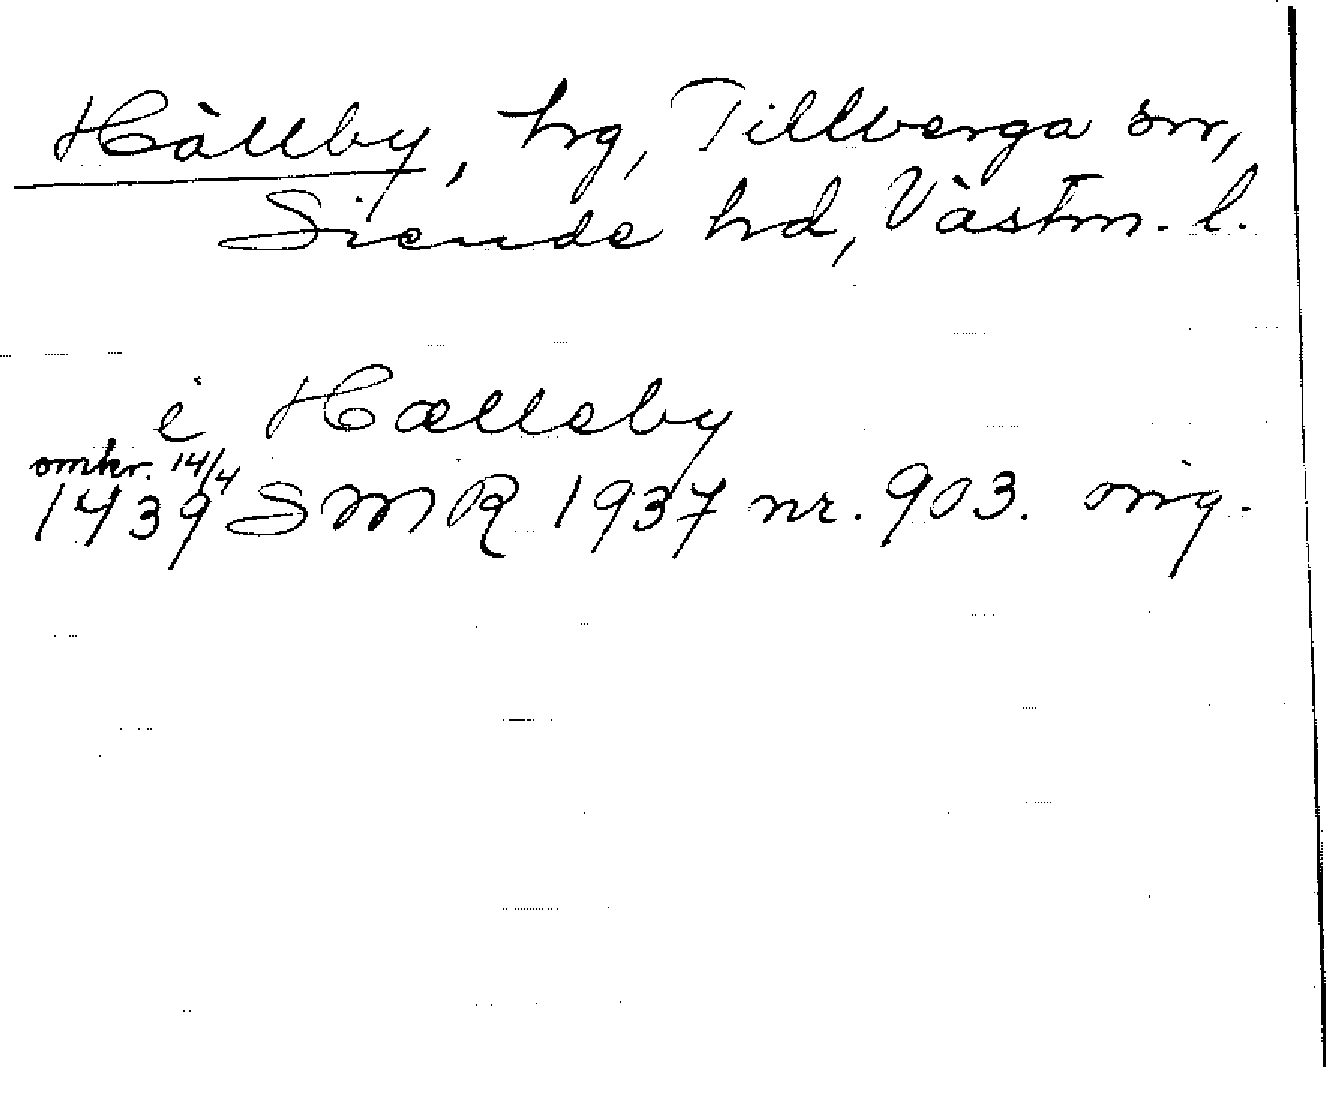 Hällby, hg, Tillberga sn,
Siende hd, Västm. l.
i Hællæby
omkr. 14/4
1439 SMR 1937 nr. 903. orig.